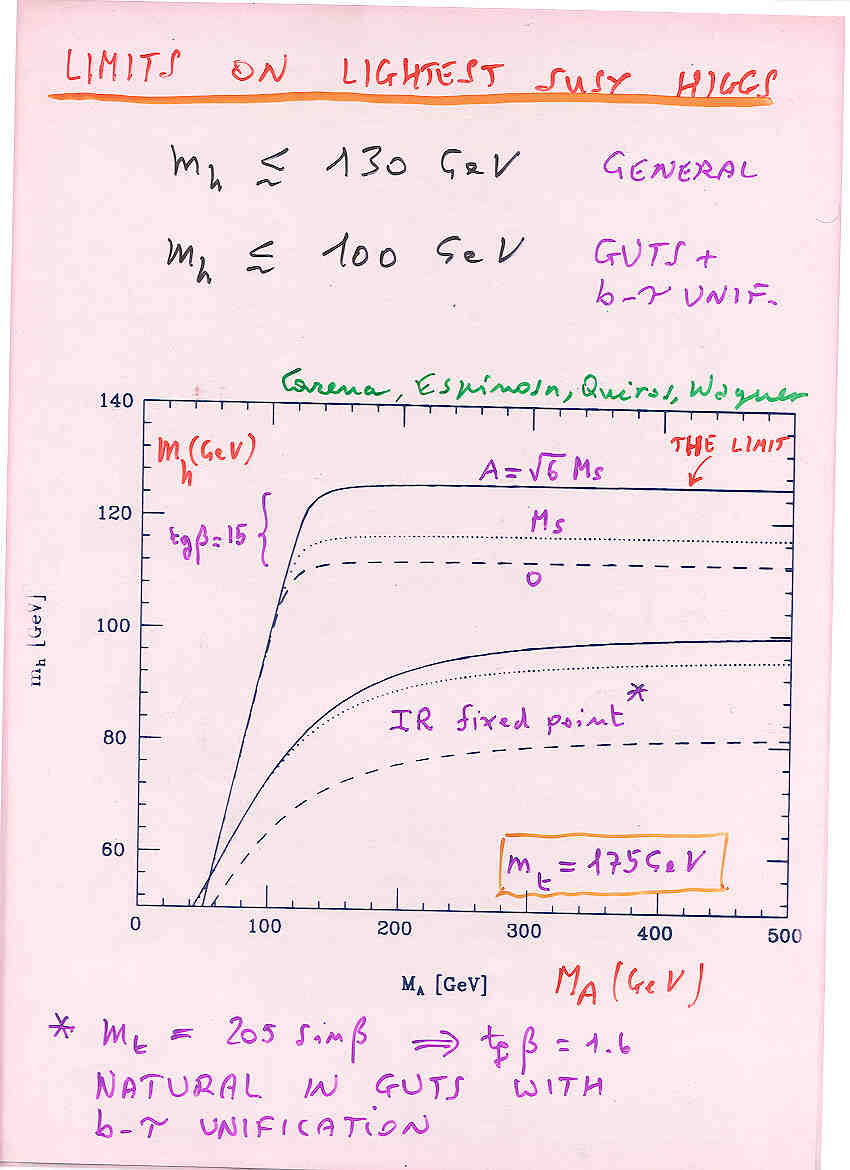 LIMITS ON LIGHTEST SUSY HIGGS
m_h ≲ 130 GeV GENERAL
m_h ≲ 100 GeV GUTS +
b-τ UNIF.
Carena, Espinosa, Quiros, Wagner
140
m_h (GeV)
THE LIMIT
A = √6 Ms
120
tgβ=15 {
Ms
0
100
m_h [GeV]
80
IR fixed point*
60
m_t = 175 GeV
0 100 200 300 400 500
M_A [GeV]
M_A (GeV)
* m_t = 205 sinβ ⟹ tgβ = 1.6
NATURAL IN GUTS WITH
b-τ UNIFICATION